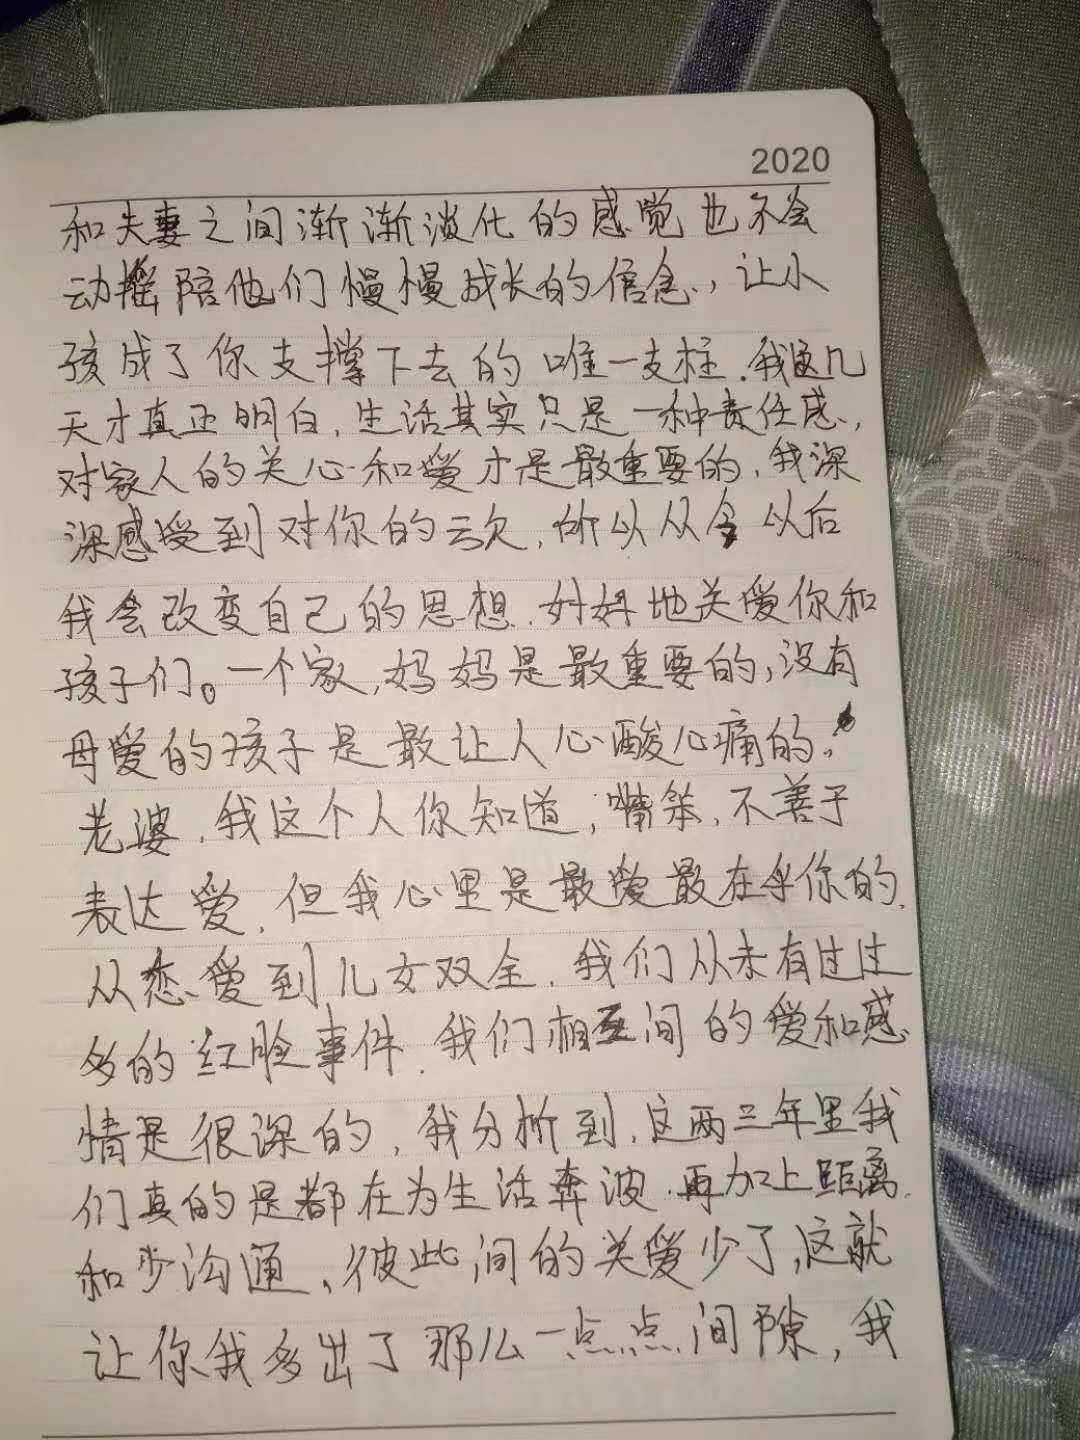 2020
和夫妻之间渐渐淡化的感觉也不会
动摇陪他们慢慢成长的信念，让小
孩成了你支撑下去的唯一支柱.我这几
天才真正明白，生活其实只是一种责任感，
对家人的关心和爱才是最重要的，我深
深感受到对你的亏欠，所以从今以后
我会改变自己的思想.好好地关爱你和
孩子们。一个家，妈妈是最重要的，没有
母爱的孩子是最让人心酸心痛的，
老婆，我这个人你知道，嘴笨，不善于
表达爱，但我心里是最爱最在乎你的.
从恋爱到儿女双全.我们从未有过过
多的红脸事件.我们相互间的爱和感
情是很深的，我分析到，这两三年里我
们真的是都在为生活奔波.再加上距离
和少沟通，彼此间的关爱少了，这就
让你我多出了那么一点点间隙，我